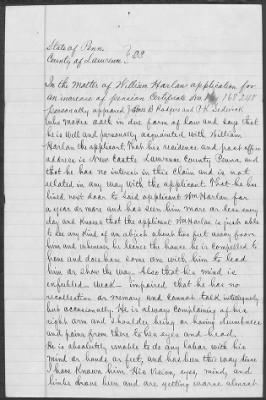 State of Penn.
County of Lawrence. } SS
In the Matter of William Harlan application for
an increase of pension Certificate No 168248
personally appeared B Rodgers and
who makes oath in due form of law and says that
he is well and personally acquainted with William
Harlan the applicant. That his residence and post office
address is New Castle Lawrence County, Penna, and
that he has no interest in this claim and is not
related in any way with the applicant. That he has
lived next door to said applicant Wm Harlan for
a year or more and has seen him more or less every
day and knows that the applicant Wm Harlan is just able
to see any kind of an object about two feet away from
him and whenever he leaves the house he is compelled to
have and does have some one with him to lead
him or show the way. Also that his mind is
enfeebled weak impaired that he has no
recollection or memory and cannot talk intelligently
but occasionally. He is always complaining of his
right arm and shoulder being or having numbness
and pains from there to his eyes and head.
He is absolutely unable to do any labor with his
mind or hands or feet, and has been this way since
I have known him. His vision, eyes, mind, and
limbs drawn here and are getting worse almost